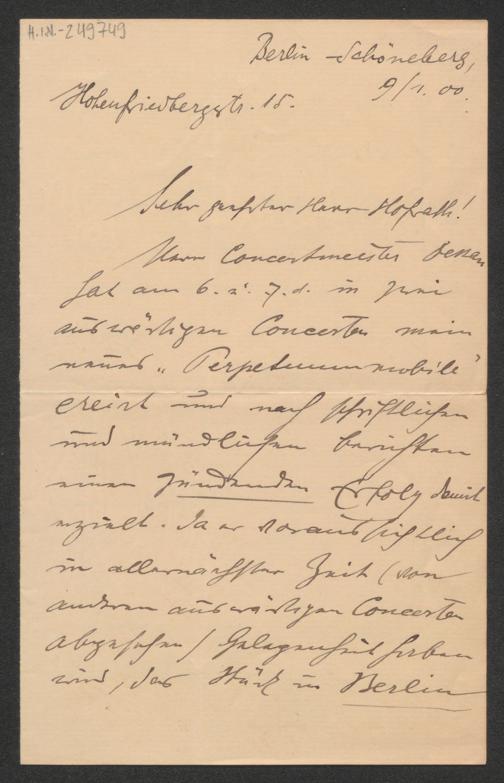 H.I.N.-249749
Berlin-Schöneberg,
9/1. 00.
Hohenfriedbergstr. 15.
Sehr geehrter Herr Hofrath!
Herr Concertmeister Dessau
hat am 6. u. 7. d. in zwei
auswärtigen Concerten mein
neues „Perpetuum mobile"
creirt und nach schriftlichen
und mündlichen Berichten
einen zündenden Erfolg damit
erzielt. Da er voraussichtlich
in allernächster Zeit (von
anderen auswärtigen Concerten
abgesehen) Gelegenheit haben
wird, das Stück in Berlin